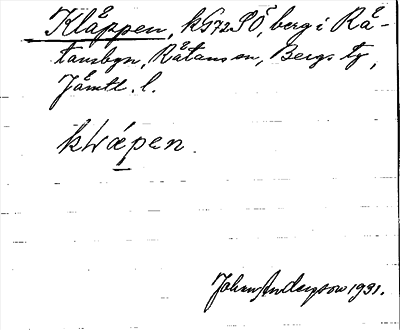 Kläppen, kG72SÖ, berg i Rå-
tansbyn, Råtans sn, Bergs tg,
Jämtl. l.
Johan Anderson 1931.